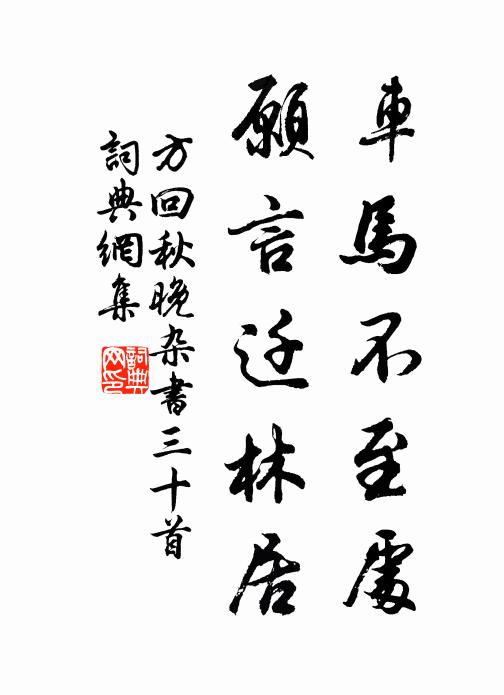 車馬不至處
願言迁林居
方回秋晚杂書三十首
詞典網集
詞典網印